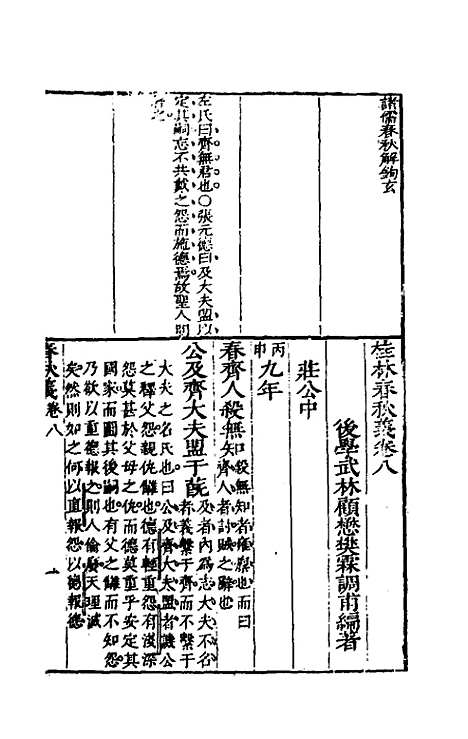 諸儒春秋解鉤玄
左氏曰齊無君也○張元德曰及大夫盟以
定其嗣忘不共戴之怨而施德焉故聖人明
桂林春秋義卷八
後學武林顧懋樊霖調甫編著
莊公中
丙申
九年
春齊人殺無知
殺無知者雍廩也而曰
齊人者討賊之辭也
公及齊大夫盟于蔇
及者內為志大夫不名
義繫于齊而不繫于
大夫之名氏也曰公及齊大夫盟者譏公
之釋父怨親仇讎也德有輕重怨有淺深
怨莫甚於父母之仇而德莫重乎安定其
國家而圖其後嗣也有父之讎而不知怨
乃欲以重德報之則人倫廢天理滅
矣然則如之何以直報怨以德報德
春秋義卷八
一